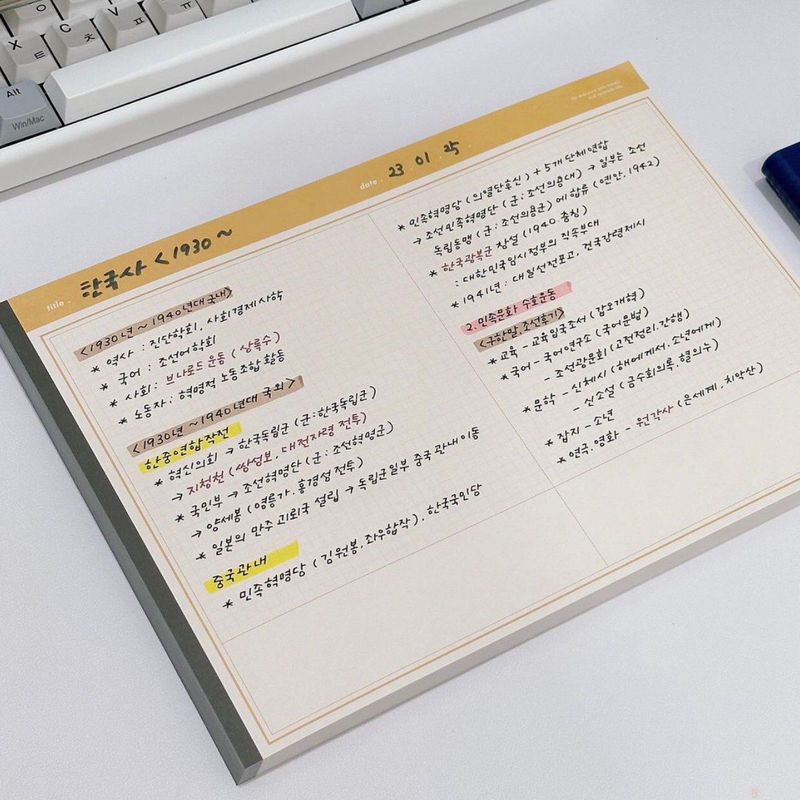 X
C
V
ㅌ
ㅊ
ㅍ
ㅠ
ㅜ
Alt
Win/Mac
title .
한국사 <1930 ~
date .
23 01 25
<1930년 ~ 1940년대 국내>
* 역사 : 진단학회, 사회경제사학
* 국어 : 조선어학회
* 사회 : 브나로드운동 (상록수)
* 노동자 : 혁명적 노동조합 활동
<1930년 ~ 1940년대 국외>
한중연합작전
* 혁신의회 → 한국독립군 (군 : 한국독립군)
→ 지청천 (쌍성보, 대전자령 전투)
* 국민부 → 조선혁명단 (군 : 조선혁명군)
→ 양세봉 (영릉가, 흥경성 전투)
* 일본의 만주 괴뢰국 설립 → 독립군일부 중국 관내 이동
중국관내
* 민족혁명당 (김원봉, 좌우합작), 한국국민당
* 민족혁명당 (의열단후신) + 5개 단체 연합
→ 조선민족혁명단 (군 : 조선의용대) → 일부는 조선
독립동맹 (군 : 조선의용군)에 합류 (연안, 1942)
* 한국광복군 창설 (1940. 충칭)
: 대한민국임시정부의 직속부대
* 1941년 : 대일선전포고, 건국강령제시
2. 민족문화 수호운동
<구한말, 조선후기>
* 교육 - 교육입국조서 (갑오개혁)
* 국어 - 국어연구소 (국어문법)
- 조선광문회 (고전정리, 간행)
* 문학 - 신체시 (해에게서, 소년에게)
- 신소설 (금수회의록, 혈의누)
* 잡지 - 소년
* 연극, 영화 - 원각사 (은세계, 치악산)